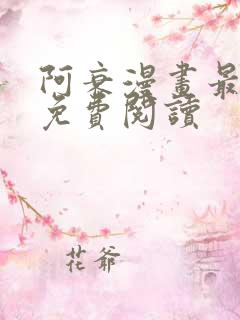 阿衰漫畫最
免費閱讀
花爺